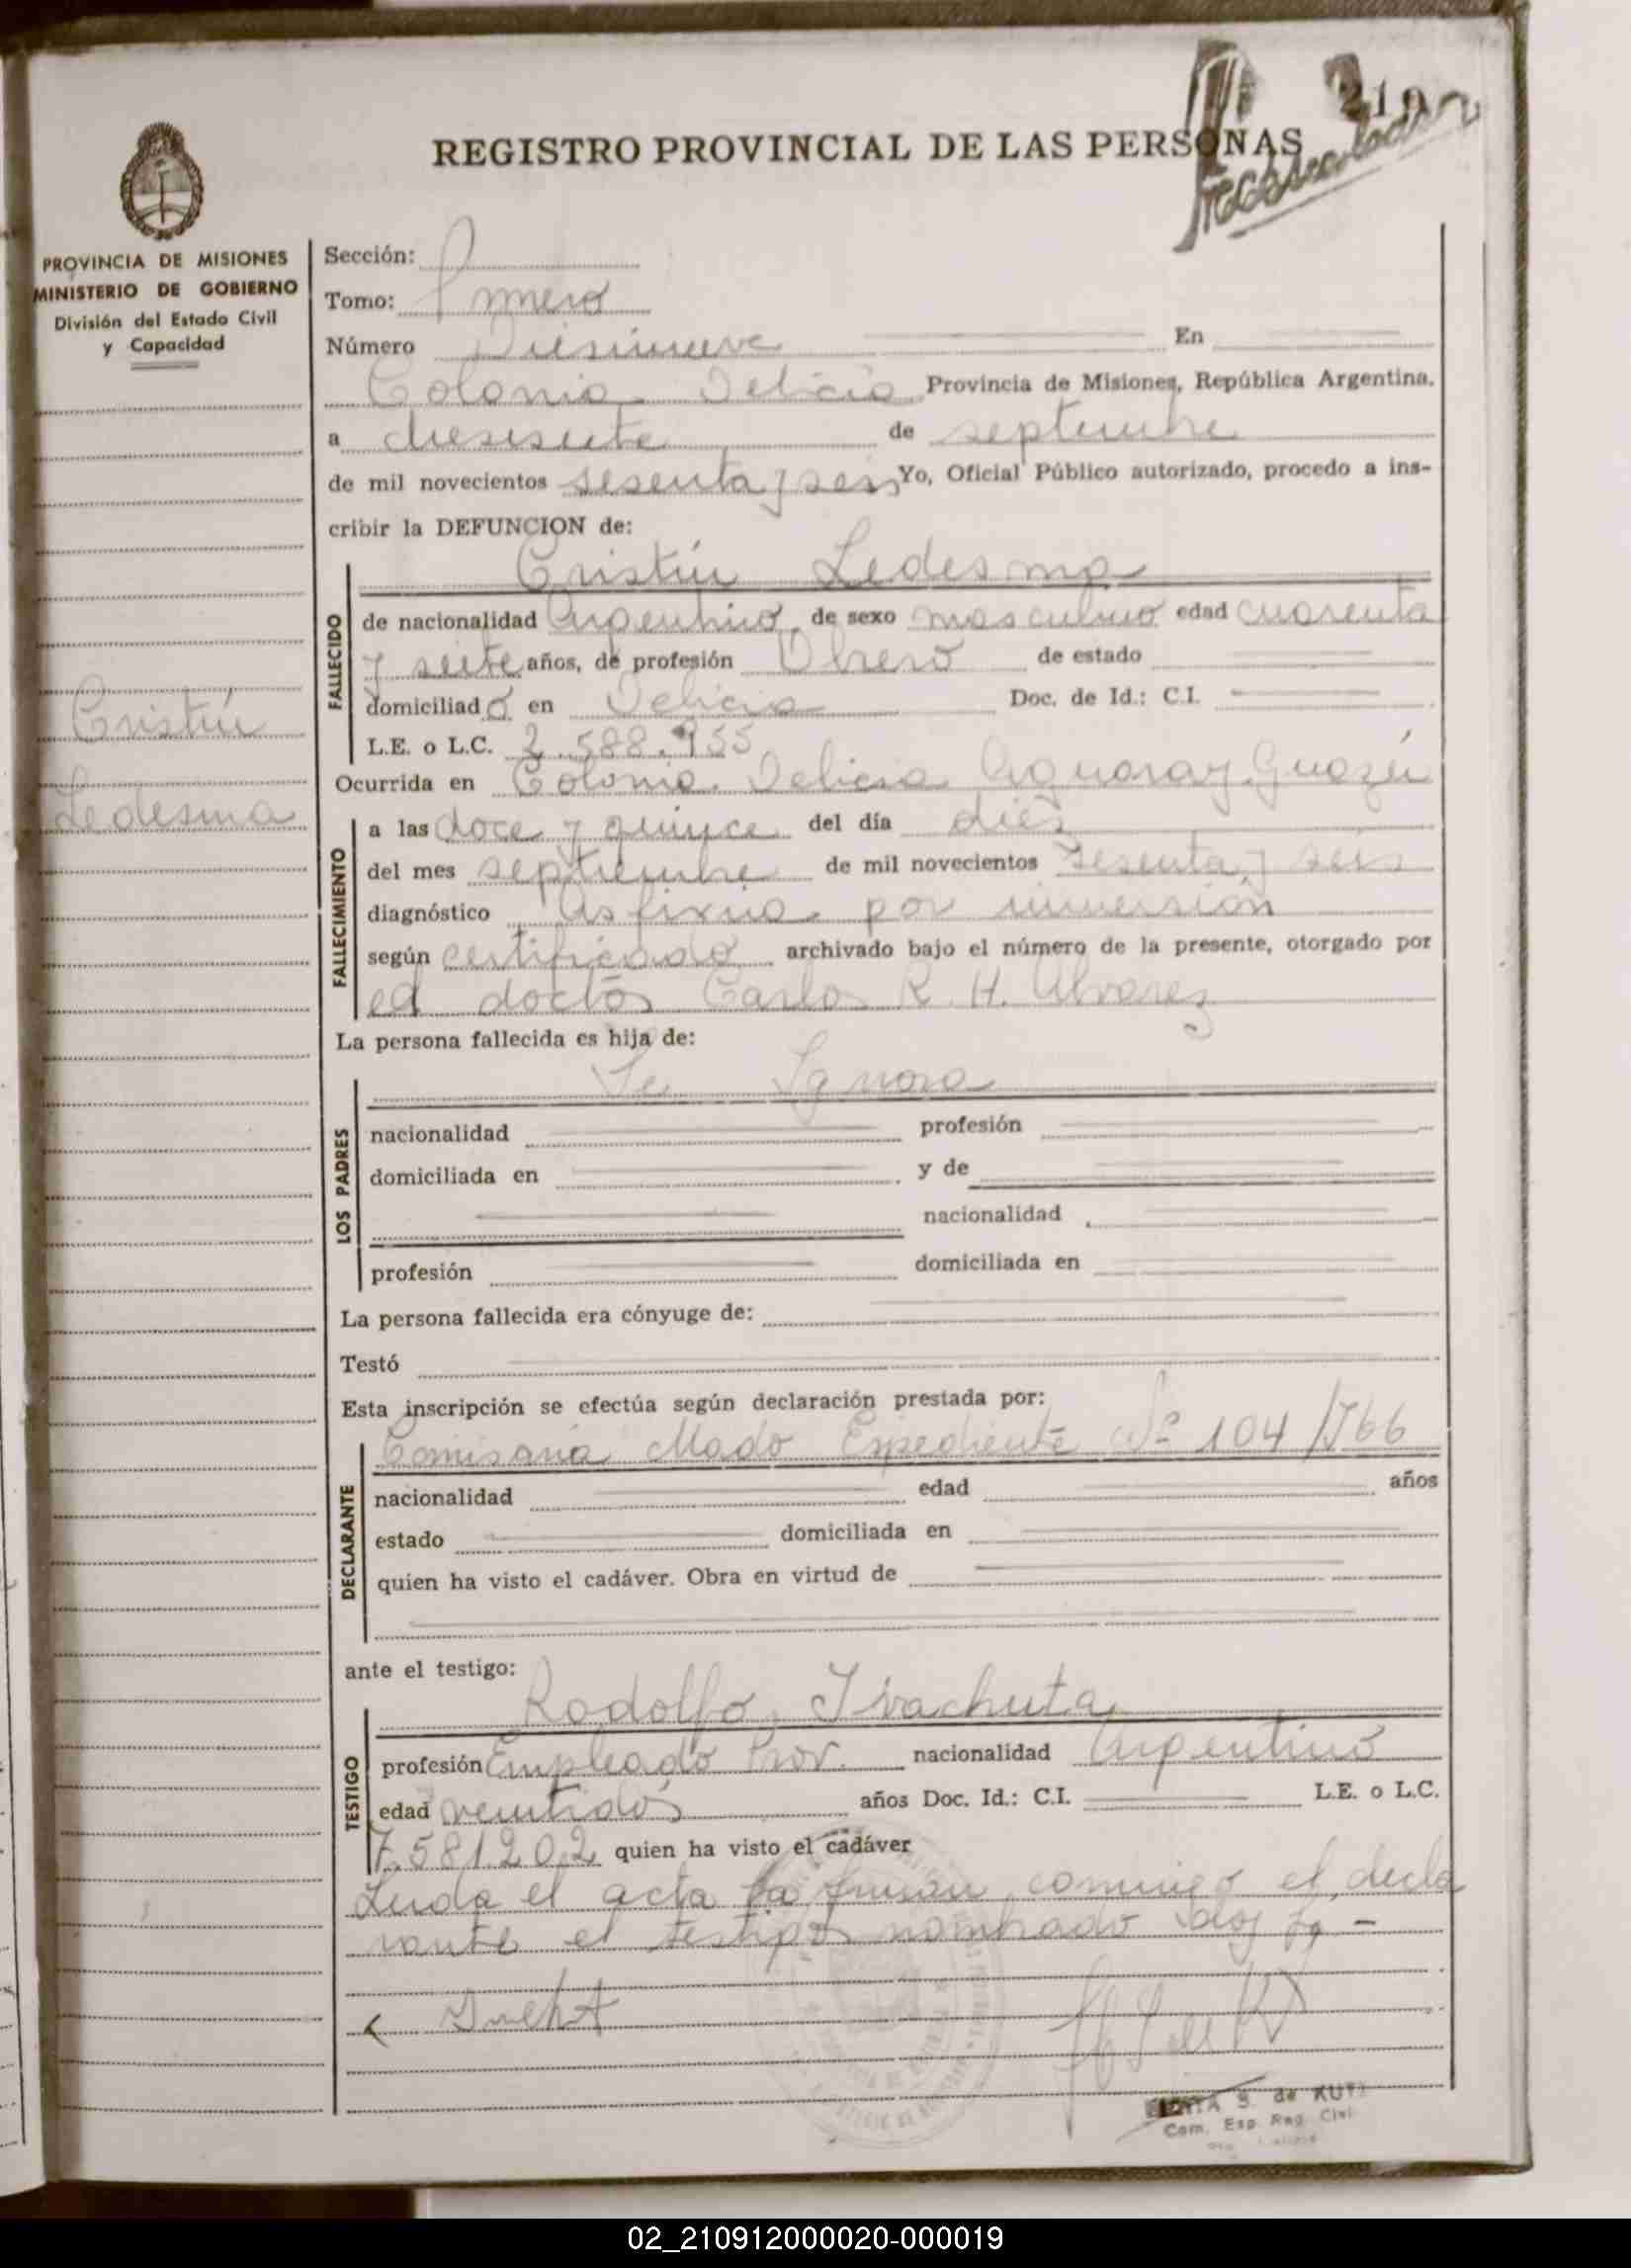 219
REGISTRO PROVINCIAL DE LAS PERSONAS
PROVINCIA DE MISIONES
MINISTERIO DE GOBIERNO
División del Estado Civil
y Capacidad
Cristín
Ledesma
Sección:
Tomo: Primero
Número Diesinueve En
Colonia Delicia Provincia de Misiones, República Argentina.
a diesisiete de septiembre
de mil novecientos sesenta y seis Yo, Oficial Público autorizado, procedo a ins-
cribir la DEFUNCION de:
Cristín Ledesma
FALLECIDO
de nacionalidad Argentino, de sexo masculino edad cuarenta
y siete años, de profesión Obrero de estado
domiciliado en Delicia Doc. de Id.: C.I.
L.E. o L.C. 2.588.955
Ocurrida en Colonia Delicia Aguaray-Guazú
FALLECIMIENTO
a las doce y quince del día diez
del mes septiembre de mil novecientos sesenta y seis
diagnóstico Asfixia por inmersión
según certificado archivado bajo el número de la presente, otorgado por
ed doctor Carlos R. H. Alvarez
La persona fallecida es hija de:
Se Ignora
LOS PADRES
nacionalidad profesión
domiciliada en y de
nacionalidad
profesión domiciliada en
La persona fallecida era cónyuge de:
Testó
Esta inscripción se efectúa según declaración prestada por:
Comisaria Mado Expediente Nº 104/766
DECLARANTE
nacionalidad edad años
estado domiciliada en
quien ha visto el cadáver. Obra en virtud de
ante el testigo:
Rodolfo Ivachuta
TESTIGO
profesión Empleado Prov. nacionalidad Argentino
edad veintidós años Doc. Id.: C.I. L.E. o L.C.
7.581.202 quien ha visto el cadáver
Leida el acta la firman conmigo el decla
rante el testigo nombrado doy fe -
S. de KUTI
Com. Esp Reg Civil
02_210912000020-000019